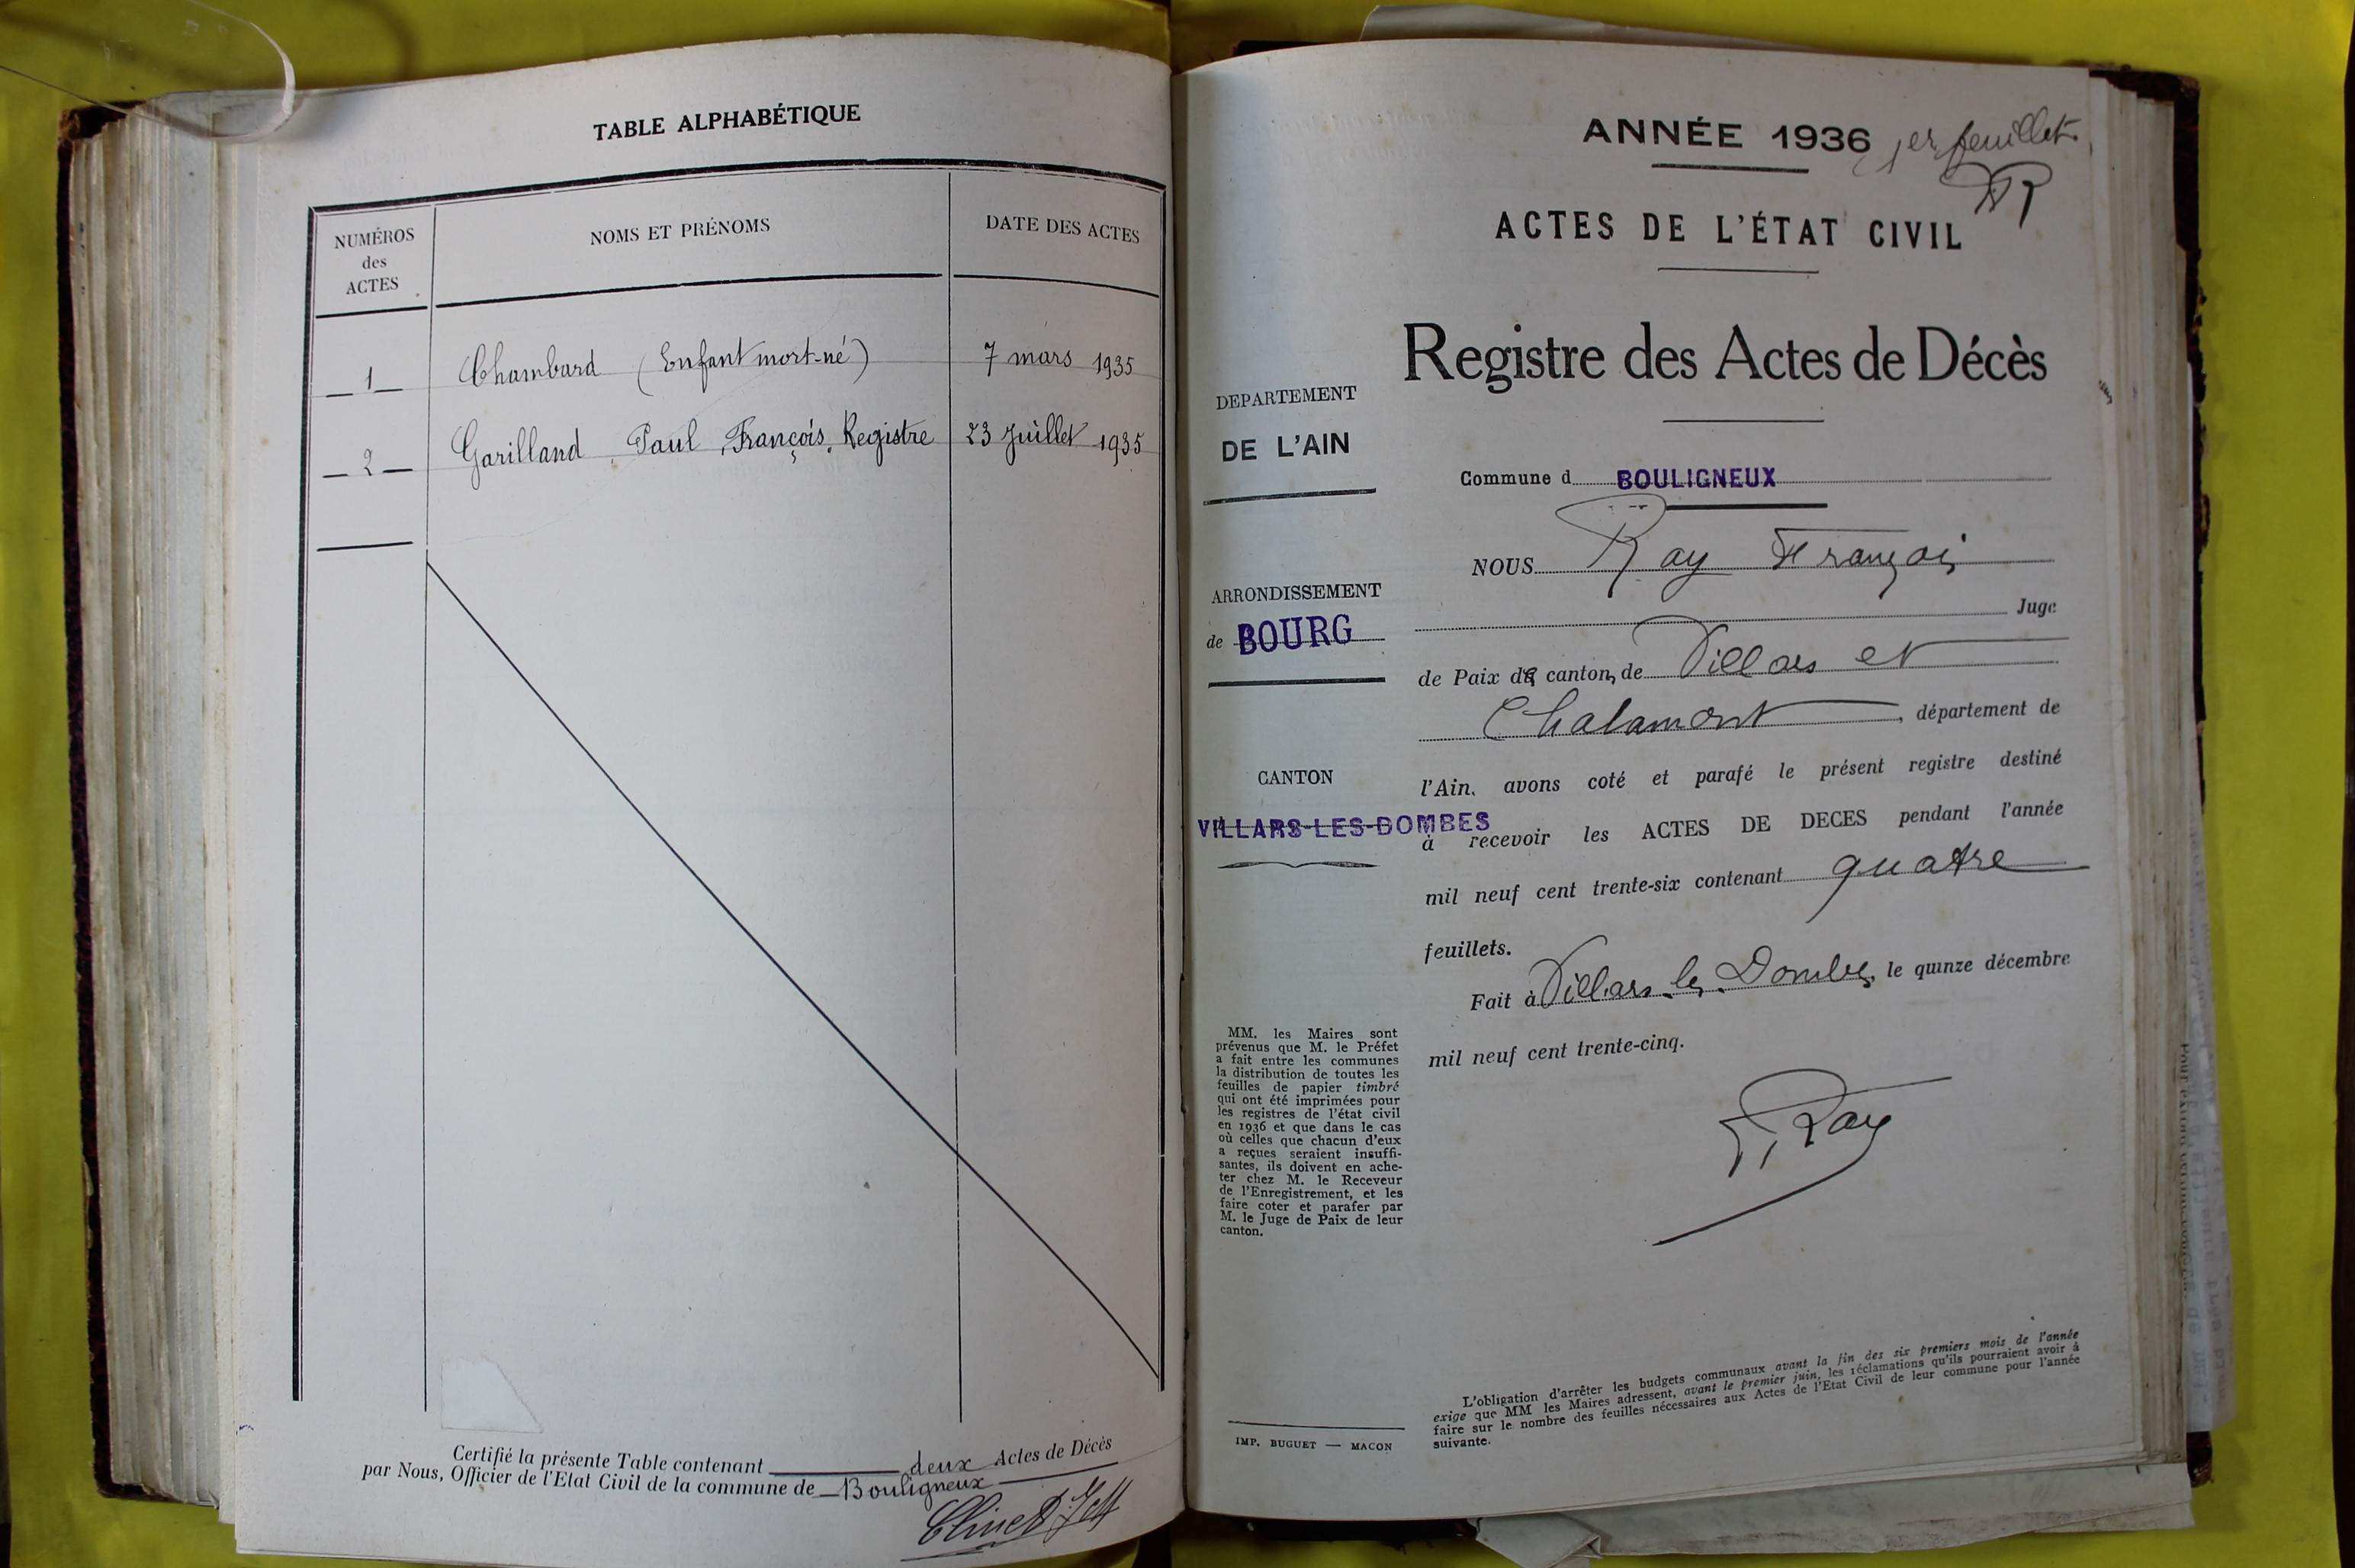 TABLE ALPHABÉTIQUE
NUMÉROS
des
ACTES
NOMS ET PRÉNOMS
DATE DES ACTES
1 Chambard (Enfant mort-né) 7 mars 1935
2 Garilland Paul, François, Registre 23 Juillet 1935
Certifié la présente Table contenant deux Actes de Décès
par Nous, Officier de l'Etat Civil de la commune de Bouligneux
ANNÉE 1936 1er feuillet
ACTES DE L'ÉTAT CIVIL
Registre des Actes de Décès
DEPARTEMENT
DE L'AIN
ARRONDISSEMENT
de BOURG
CANTON
VILLARS-LES-DOMBES
MM. les Maires sont
prévenus que M. le Préfet
a fait entre les communes
la distribution de toutes les
feuilles de papier timbré
qui ont été imprimées pour
les registres de l'état civil
en 1936 et que dans le cas
où celles que chacun d'eux
a reçues seraient insuffi-
santes, ils doivent en ache-
ter chez M. le Receveur
de l'Enregistrement, et les
faire coter et parafer par
M. le Juge de Paix de leur
canton.
IMP. BUGUET — MACON
Commune d BOULIGNEUX
NOUS Ray François
Juge
de Paix des cantons de Villars et
Chalamont, département de
l'Ain, avons coté et parafé le présent registre destiné
à recevoir les ACTES DE DECES pendant l'année
mil neuf cent trente-six contenant quatre
feuillets.
Fait à Villars les Dombes, le quinze décembre
mil neuf cent trente-cinq.
F. Ray
L'obligation d'arrêter les budgets communaux avant la fin des six premiers mois de l'année
exige que MM les Maires adressent, avant le premier juin, les réclamations qu'ils pourraient avoir à
faire sur le nombre des feuilles nécessaires aux Actes de l'Etat Civil de leur commune pour l'année
suivante.